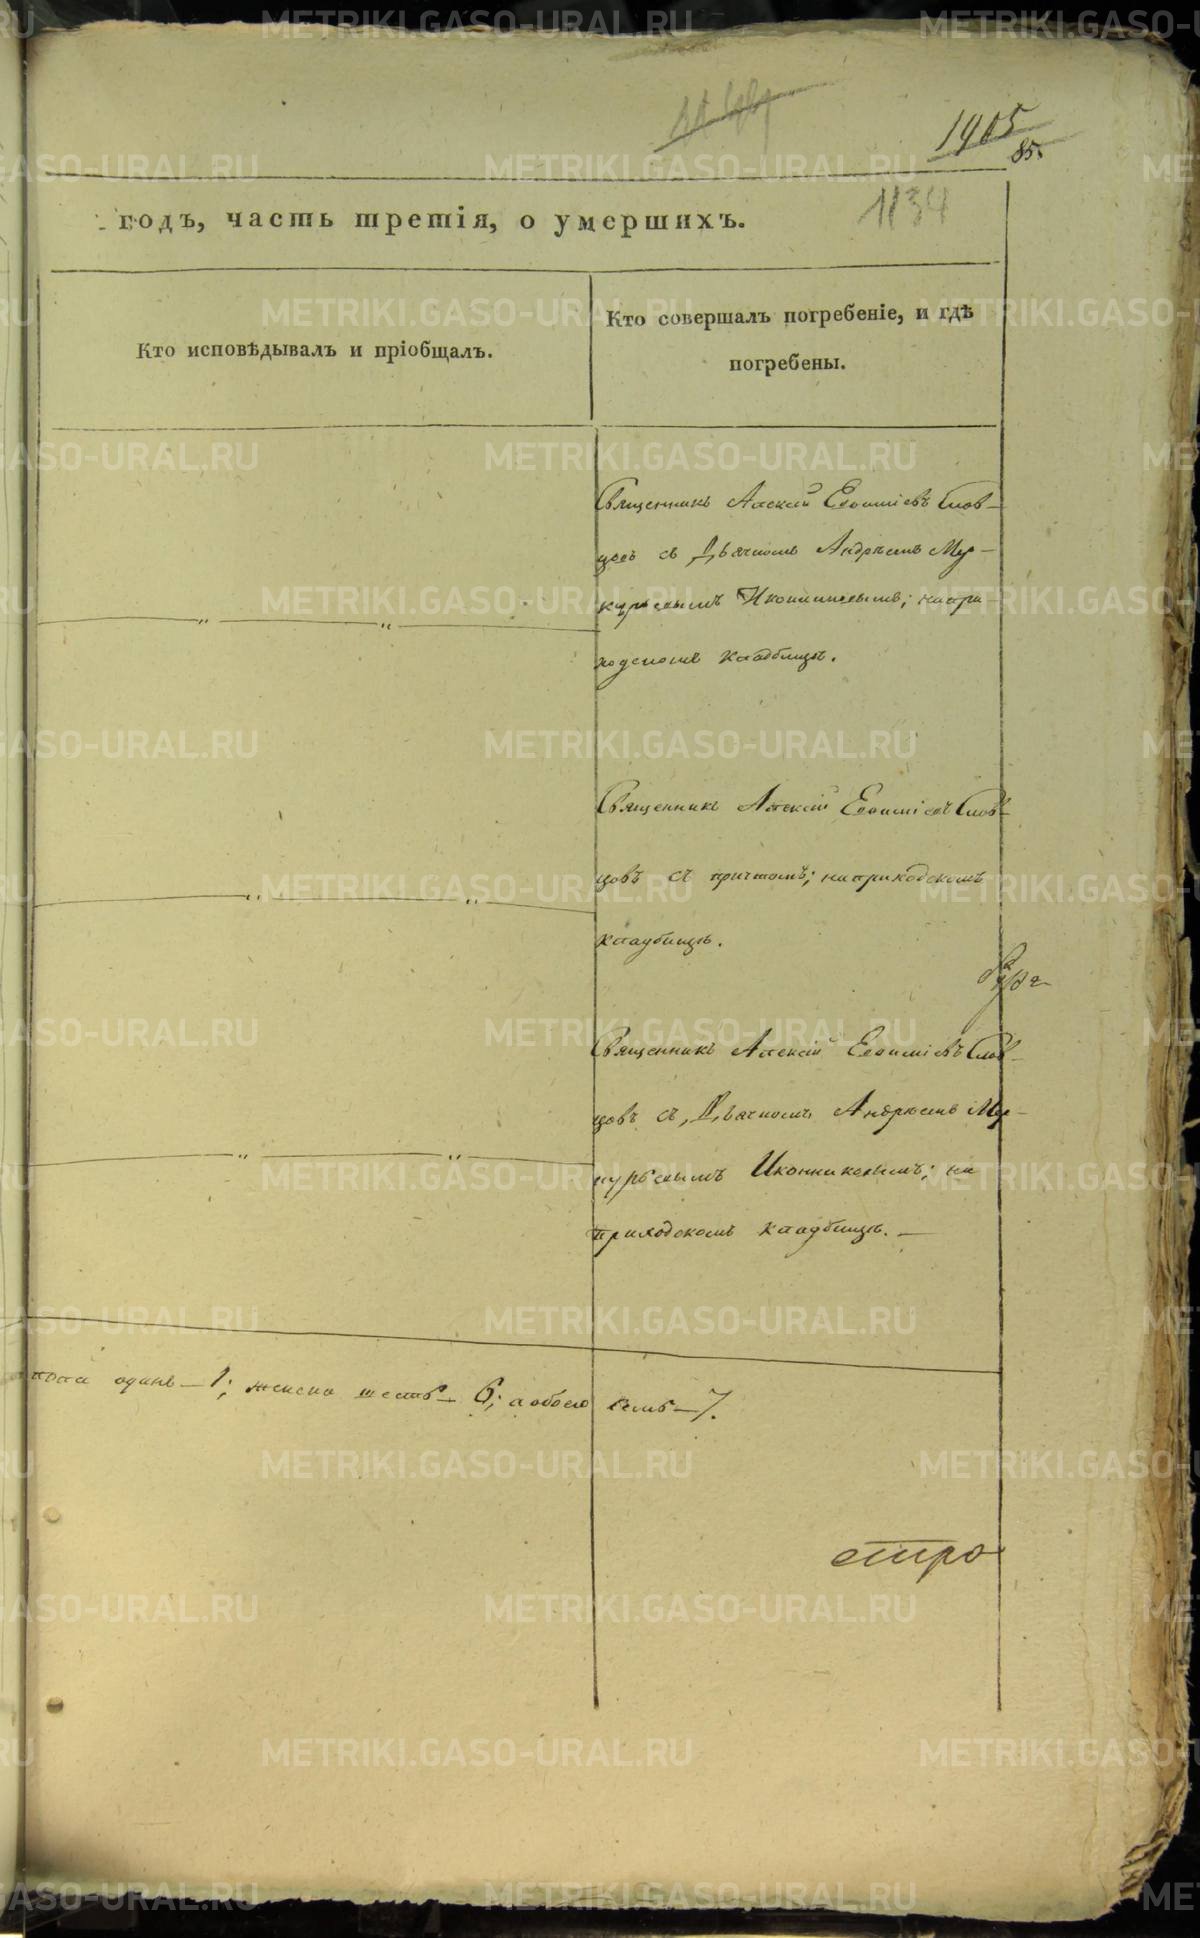 1905
85.
1134
годъ, часть третія, о умершихъ.
Кто исповѣдывалъ и пріобщалъ.
Кто совершалъ погребеніе, и гдѣ
погребены.
Священникъ Алексій Евѳиміевъ Слов-
цовъ съ Дьячкомъ Андреемъ Мер-
курьевымъ Иконниковымъ; на при-
ходскомъ кладбищѣ.
Священникъ Алексій Евѳиміевъ Слов-
цовъ съ причтомъ; на приходскомъ
кладбищѣ.
Священникъ Алексій Евѳиміевъ Слов-
цовъ съ Дьячкомъ Андреемъ Мер-
курьевымъ Иконниковымъ; на
приходскомъ кладбищѣ. —
пола одинъ — 1; женска шесть — 6; а обоего семь — 7.
METRIKI.GASO-URAL.RU